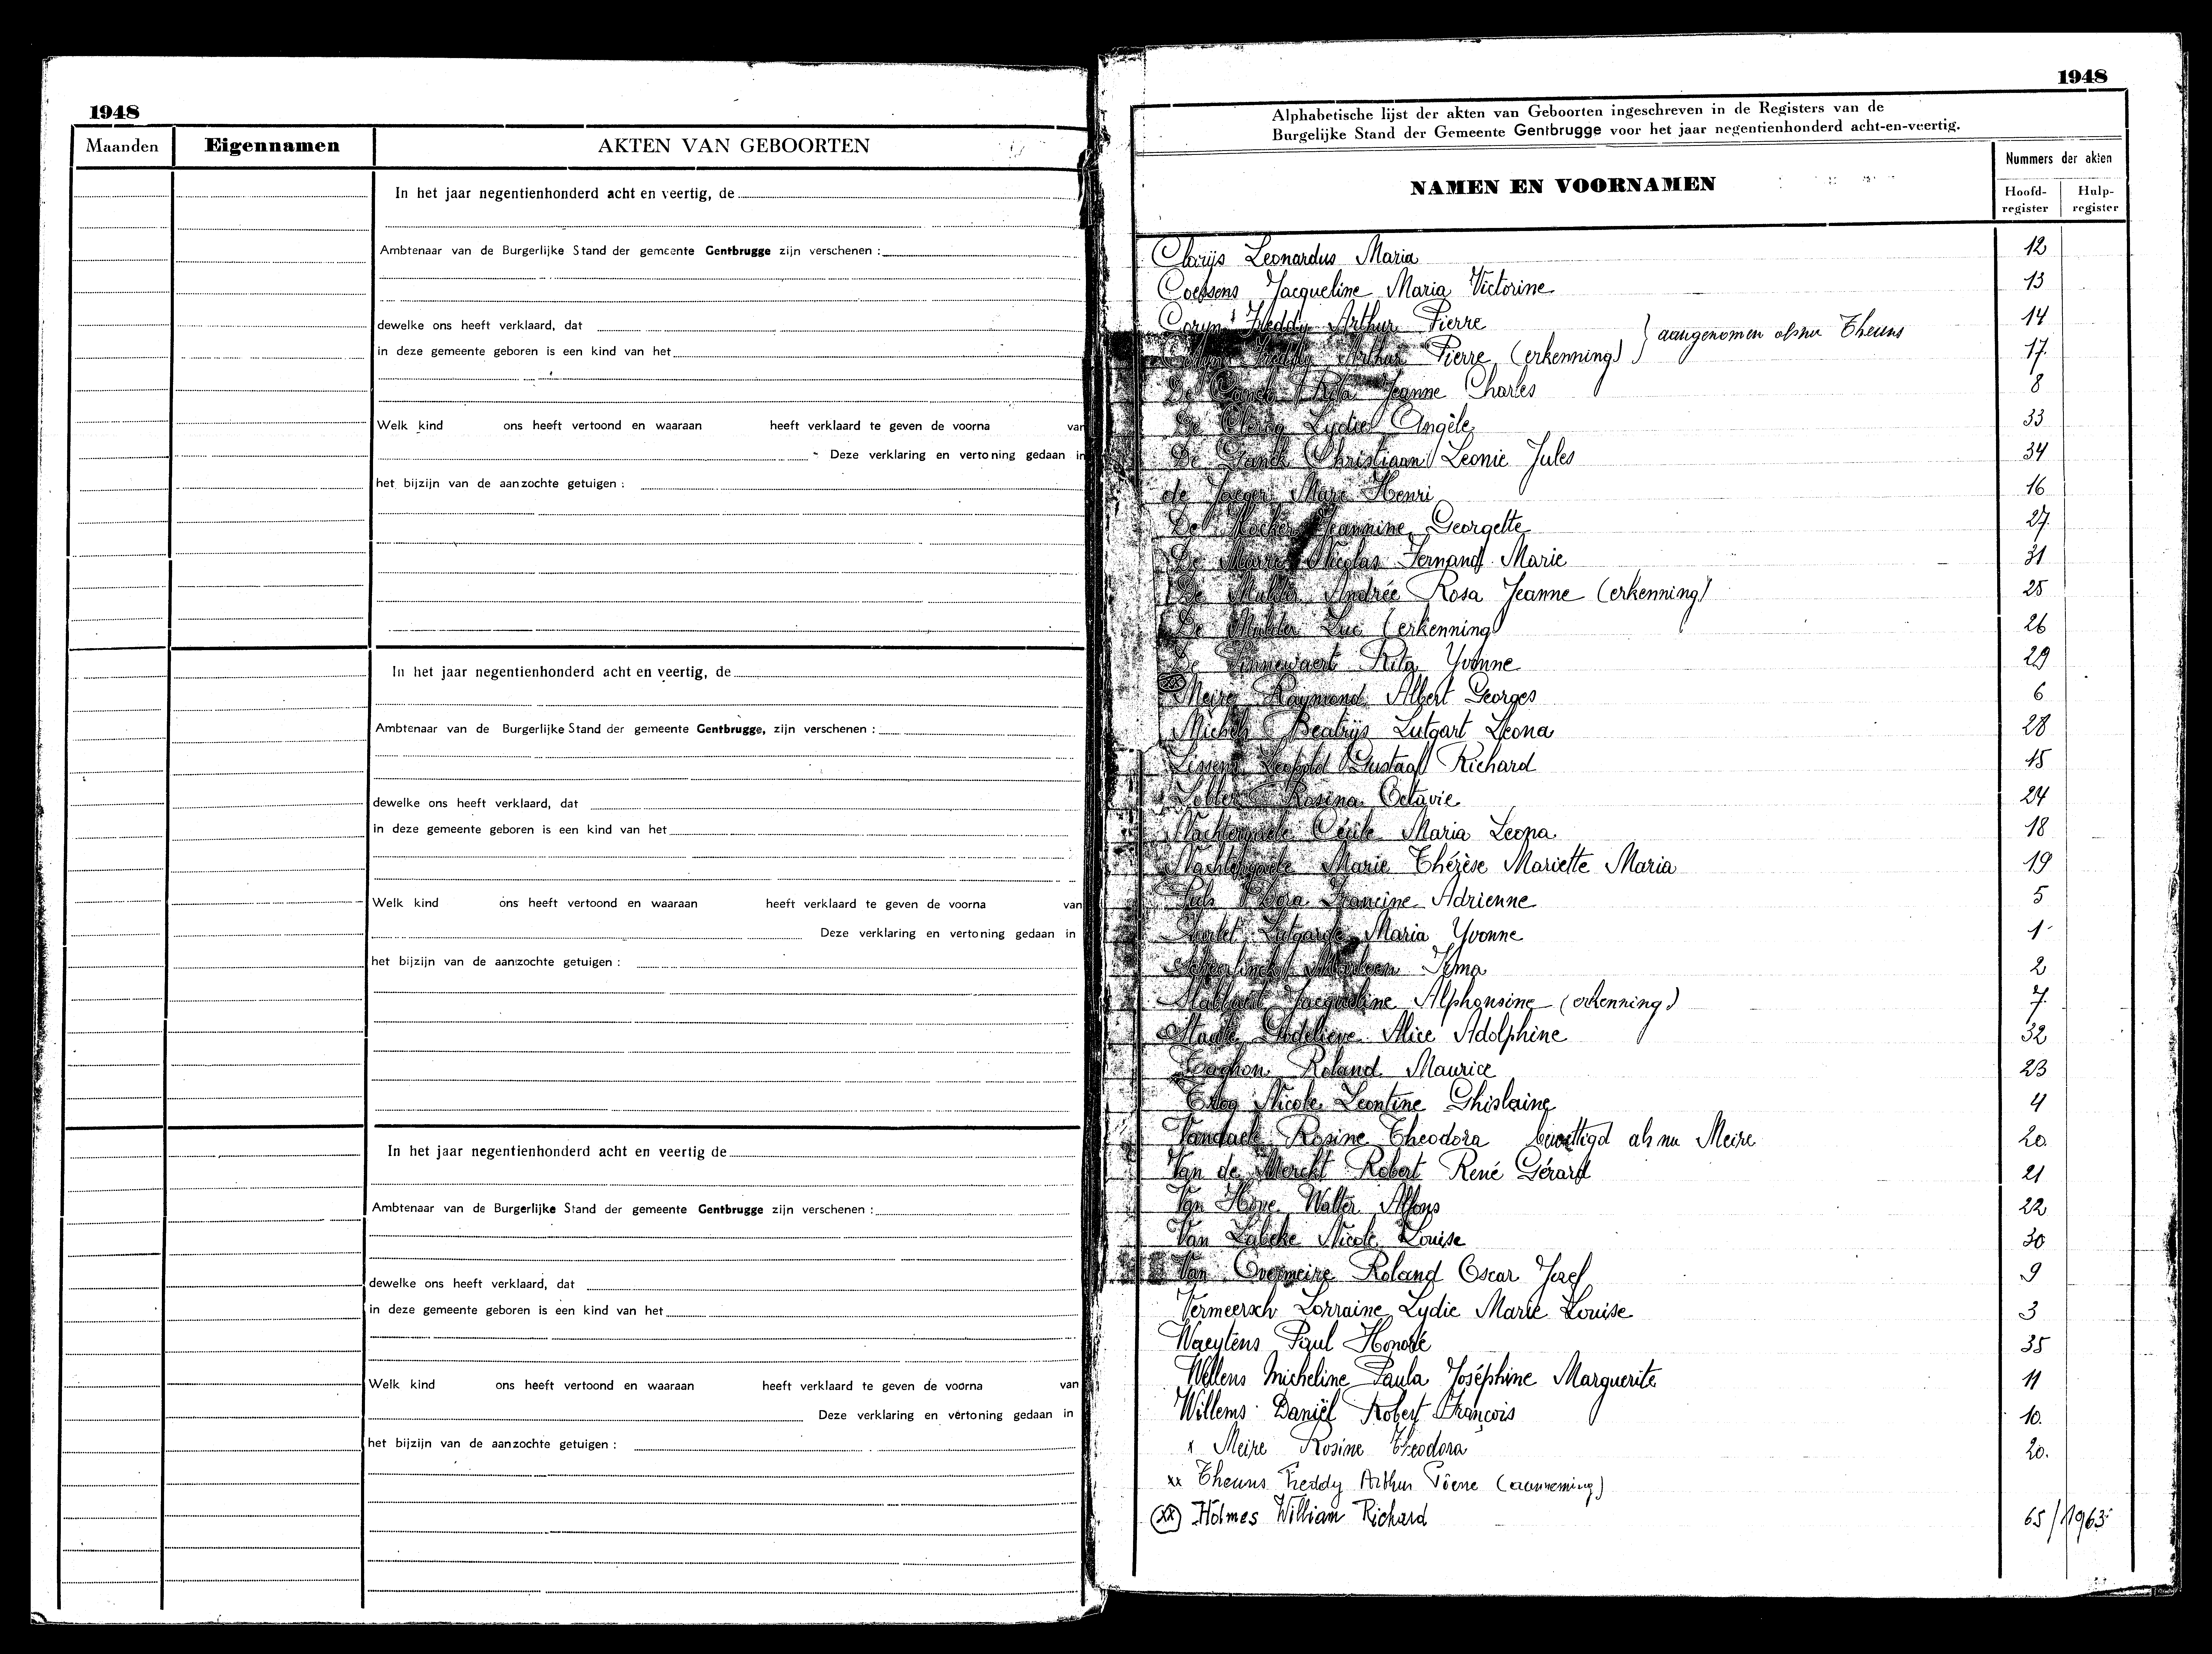 1948
Maanden Eigennamen AKTEN VAN GEBOORTEN
In het jaar negentienhonderd acht en veertig, de
Ambtenaar van de Burgerlijke Stand der gemeente Gentbrugge zijn verschenen :
dewelke ons heeft verklaard, dat
in deze gemeente geboren is een kind van het
Welk kind ons heeft vertoond en waaraan heeft verklaard te geven de voorna van
Deze verklaring en vertoning gedaan in
het bijzijn van de aanzochte getuigen :
In het jaar negentienhonderd acht en veertig, de
Ambtenaar van de Burgerlijke Stand der gemeente Gentbrugge, zijn verschenen :
dewelke ons heeft verklaard, dat
in deze gemeente geboren is een kind van het
Welk kind ons heeft vertoond en waaraan heeft verklaard te geven de voorna van
Deze verklaring en vertoning gedaan in
het bijzijn van de aanzochte getuigen :
In het jaar negentienhonderd acht en veertig de
Ambtenaar van de Burgerlijke Stand der gemeente Gentbrugge zijn verschenen :
dewelke ons heeft verklaard, dat
in deze gemeente geboren is een kind van het
Welk kind ons heeft vertoond en waaraan heeft verklaard te geven de voorna van
Deze verklaring en vertoning gedaan in
het bijzijn van de aanzochte getuigen :
1948
Alphabetische lijst der akten van Geboorten ingeschreven in de Registers van de
Burgelijke Stand der Gemeente Gentbrugge voor het jaar negentienhonderd acht-en-veertig.
NAMEN EN VOORNAMEN
Nummers der akten
Hoofd-register Hulp-register
Clarijs Leonardus Maria 12
Coessens Jacqueline Maria Victorine 13
Coryn Freddy Arthur Pierre 14
aangenomen als nu Theuns
Freddy Arthur Pierre (erkenning) 17
De Rita Jeanne Charles 8
De Clercq Lydie Angèle 33
De Christiaan Leonie Jules 34
de Jaeger Marc Henri 16
De Jeannine Georgette 27
De Nicolas Fernand Marie 31
De Mulder Andrée Rosa Jeanne (erkenning) 25
De Mulder Luc (erkenning) 26
De Rita Yvonne 29
Meire Raymond Albert Georges 6
Michels Beatrijs Lutgart Leona 28
Leopold Gustaaf Richard 15
Rosina Octavie 24
Nachtergaele Cécile Maria Leona 18
Nachtergaele Marie Thérèse Mariette Maria 19
Dora Francine Adrienne 5
Lutgarde Maria Yvonne 1
Irma 2
Jacqueline Alphonsine (erkenning) 7
Godelieve Alice Adolphine 32
Taghon Roland Maurice 23
Nicole Leontine Ghislaine 4
Vandaele Rosine Theodora bewettigd als nu Meire 20
Van de Merckt Robert René Gérard 21
Van Hove Walter Alfons 22
Van Labeke Nicole Louise 30
Van Overmeire Roland Oscar Jozef 9
Vermeersch Lorraine Lydie Marie Louise 3
Waeytens Paul Honoré 35
Wellens Micheline Paula Joséphine Marguerite 11
Willems Daniël Robert François 10
x Meire Rosine Theodora 20.
xx Theuns Freddy Arthur Pierre (aanneming)
xx Holmes William Richard 65/1963